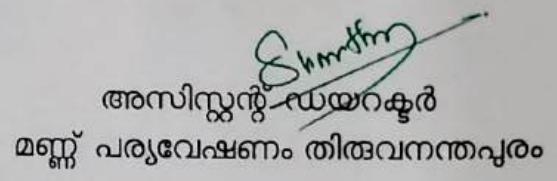 അസിസ്റ്റന്റ് ഡയറക്ടർ
മണ്ണ് പര്യവേഷണം തിരുവനന്തപുരം